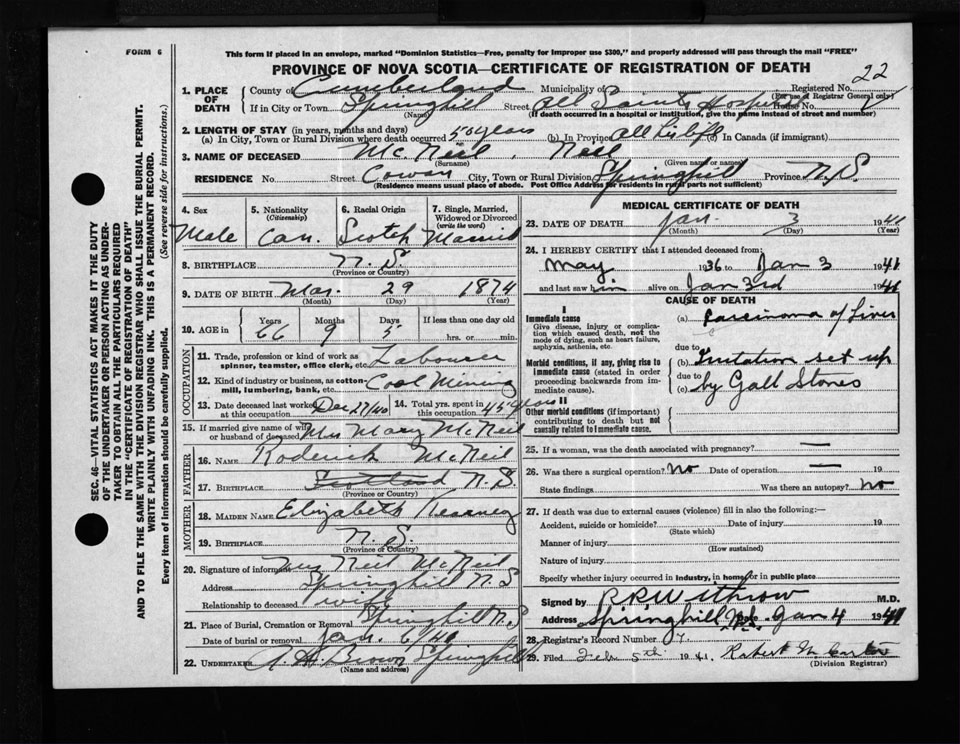 FORM 6
This form if placed in an envelope, marked "Dominion Statistics—Free, penalty for improper use $300," and properly addressed will pass through the mail "FREE"
PROVINCE OF NOVA SCOTIA—CERTIFICATE OF REGISTRATION OF DEATH
22
1. PLACE OF DEATH County of Cumberland Municipality of Registered No.
(For use of Registrar General only)
If in City or Town Springhill Street All Saints Hospital House No.
(Name) (If death occurred in a hospital or institution, give the name instead of street and number)
2. LENGTH OF STAY (in years, months and days)
(a) In City, Town or Rural Division where death occurred 50 years (b) In Province all his life (c) In Canada (if immigrant)
3. NAME OF DECEASED McNeil, Neil
(Surname) (Given name or names)
RESIDENCE No. Street Cowan City, Town or Rural Division Springhill Province N.S.
(Residence means usual place of abode. Post Office Address for residents in rural parts not sufficient)
4. Sex 5. Nationality (Citizenship) 6. Racial Origin 7. Single, Married, Widowed or Divorced (write the word)
Male Can. Scotch Married
8. BIRTHPLACE N.S.
(Province or Country)
9. DATE OF BIRTH Mar. 29 1874
(Month) (Day) (Year)
10. AGE in Years Months Days If less than one day old
66 9 5 hrs. or min.
OCCUPATION
11. Trade, profession or kind of work as spinner, teamster, office clerk, etc. Labourer
12. Kind of industry or business, as cotton-mill, lumbering, bank, etc. Coal Mining
13. Date deceased last worked at this occupation Dec 27/40 14. Total yrs. spent in this occupation 45 years
15. If married give name of wife or husband of deceased Mrs Mary McNeil
FATHER
16. NAME Roderick McNeil
17. BIRTHPLACE Scotland N.S.
(Province or Country)
MOTHER
18. MAIDEN NAME Elizabeth Kearney
19. BIRTHPLACE N.S.
(Province or Country)
20. Signature of informant Mrs Neil McNeil
Address Springhill N.S
Relationship to deceased wife
21. Place of Burial, Cremation or Removal Springhill N.S
Date of burial or removal Jan. 6/41
22. UNDERTAKER A. H. Brown Springhill
(Name and address)
MEDICAL CERTIFICATE OF DEATH
23. DATE OF DEATH Jan. 3 1941
(Month) (Day) (Year)
24. I HEREBY CERTIFY that I attended deceased from:
May 1936 to Jan 3 1941
and last saw him alive on Jan 3rd 1941
CAUSE OF DEATH
I
Immediate cause (a) Carcinoma of Liver
Give disease, injury or complication which caused death, not the mode of dying, such as heart failure, asphyxia, asthenia, etc.
due to
Morbid conditions, if any, giving rise to immediate cause (stated in order proceeding backwards from immediate cause). (b) Irritation set up
due to
(c) by Gall Stones
II
Other morbid conditions (if important) contributing to death but not causally related to immediate cause.
25. If a woman, was the death associated with pregnancy? —
26. Was there a surgical operation? No Date of operation — 19
State findings Was there an autopsy? No
27. If death was due to external causes (violence) fill in also the following:—
Accident, suicide or homicide? Date of injury 19
(State which)
Manner of injury
(How sustained)
Nature of injury
Specify whether injury occurred in industry, in home, or in public place
Signed by R.R. Withrow M.D.
Address Springhill N.S. Date Jan 4 1941
28. Registrar's Record Number 7.
29. Filed Feb 5th 1941. Robert
(Division Registrar)
SEC. 46—VITAL STATISTICS ACT MAKES IT THE DUTY
OF THE UNDERTAKER OR PERSON ACTING AS UNDER-
TAKER TO OBTAIN ALL THE PARTICULARS REQUIRED
IN THE "CERTIFICATE OF REGISTRATION OF DEATH"
AND TO FILE THE SAME WITH THE DIVISION REGISTRAR WHO SHALL ISSUE THE BURIAL PERMIT.
WRITE PLAINLY WITH UNFADING INK. THIS IS A PERMANENT RECORD.
Every item of information should be carefully supplied. (See reverse side for instructions.)